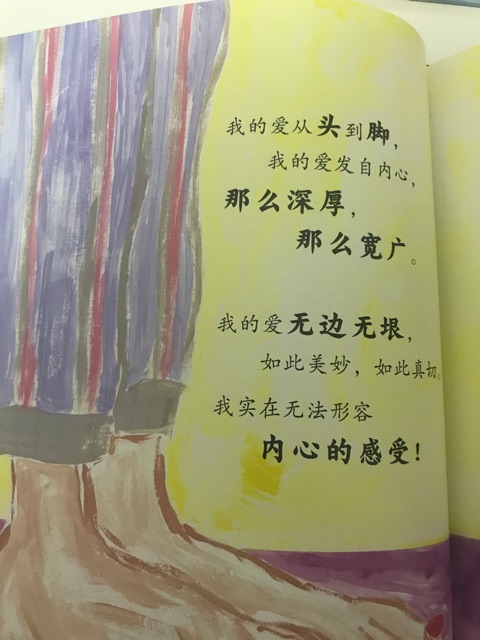 我的爱从头到脚，
我的爱发自内心，
那么深厚，
那么宽广。
我的爱无边无垠，
如此美妙，如此真切。
我实在无法形容
内心的感受！